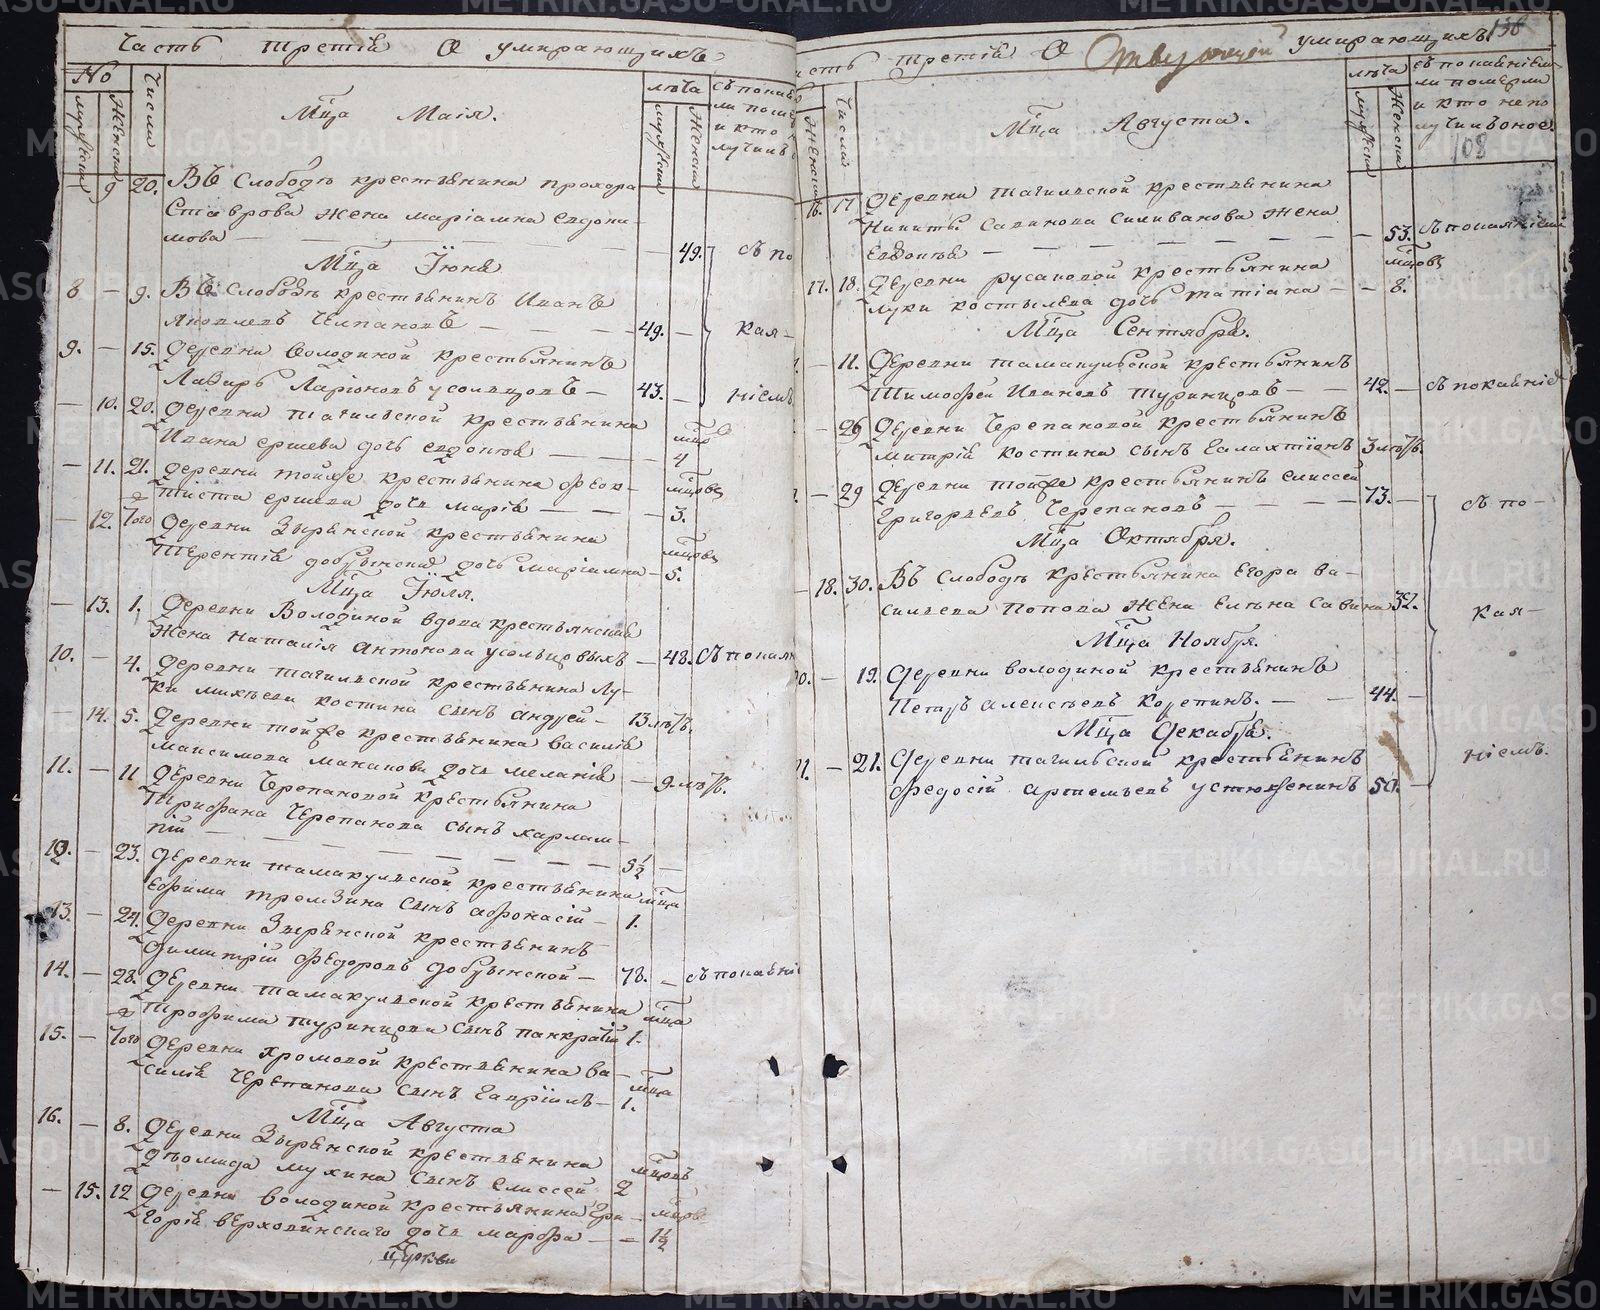 Часть третія О умирающихъ
No
мужеска
Женска
Числа
лѣта
мужеска
Женска
Мца Маія.
9 20. Въ Слободѣ крестьянина прохора
Ставрова жена маріамна евдоки-
мова — 49.
съ по
Мца Іюня
8 — 9. Въ Слободѣ крестьянинъ Иванъ
Яковлевъ Челпановъ — 49. —
кая-
9. — 15. Деревни Володиной крестьянинъ
Лазарь Ларіоновъ усольцовъ — 43. —
ніемъ
— 10. 20. Деревни тагильской крестьянина
Ивана ершева дочь евдокія — 4
— 11. 21. деревни тойже крестьянина феок-
тиста ершева дочь марія — 3. мцовъ
— 12. Того Деревни Зырянской крестьянина
Терентія добрынскаго дочь Маріамна — 5. мцовъ
Мца Іюля.
— 13. 1. Деревни Володиной вдова крестьянская
Жена наталія Антонова усольцовыхъ — 48. Съ покаян
10. — 4. Деревни тагильской крестьянина Лу-
ки михѣева костина сынъ андрей — 13 лѣтъ.
— 14. 5. Деревни тойже крестьянина василія
максимова манакова дочь меланія — 9. лѣтъ.
11. — 11 Деревни Черепановой крестьянина
Трифана Черепанова сынъ харлам-
пій — 5½ —
12. — 23. Деревни тамакульской крестьянина
Ефрима трелзина сынъ афонасій — 1. мца
13. — 24. Деревни Зырянской крестьянинъ
Димитрій Федоровъ добрынской — 78. — съ покаяні
14. — 28. Деревни тамакульской крестьянина
Трофима туринцова сынъ панкратій 1. мца
15. — Того Деревни хромовой крестьянина ва-
силія Черепанова сынъ Гавріилъ — 1. мца
Мца Августа
16. — 8. Деревни Зырянской крестьянина
діомида мухина сынъ Елиссей 2 мцовъ
— 15. 12 Деревни володиной крестьянина Гри-
горія верховинскаго дочь марфа — 1½
Церкви
часть третія О умирающихъ
138
Женска
Числа
лѣта
мужеска
Женска
съ покаяніемъ
ли померли
и кто не по
лучилъ оное.
108
Мца Августа.
16. 17 Деревни тагильской крестьянина
Никиты Савинова Селиванова жена
Евдокія — 53. съ покаяніемъ
17. 18. Деревни русаковой крестьянина
луки костылева дочь татіана — — 8. мцовъ
Мца Сентября.
— 11. Деревни тамакульской крестьянинъ
Тимофей Ивановъ Туринцовъ — 42. — съ покаяніе
— 26 Деревни Черепановой крестьянинъ
митрій костина сынъ Галахтіонъ 3 лѣтъ.
— 29 Деревни тойже крестьянинъ елиссей
Григорьевъ Черепановъ — 73. —
съ по-
Мца Октября.
18. 30. Въ Слободѣ крестьянина Егора ва-
сильева попова жена елѣна савина 32.
кая-
Мца Ноября.
20. — 19. Деревни володиной крестьянинъ
Петръ алексѣевъ корепинъ. — 44. —
Мца Декабря.
21. — 21. Деревни тагильской крестьянинъ
федосій артемьевъ устюженинъ 50. —
ніемъ.